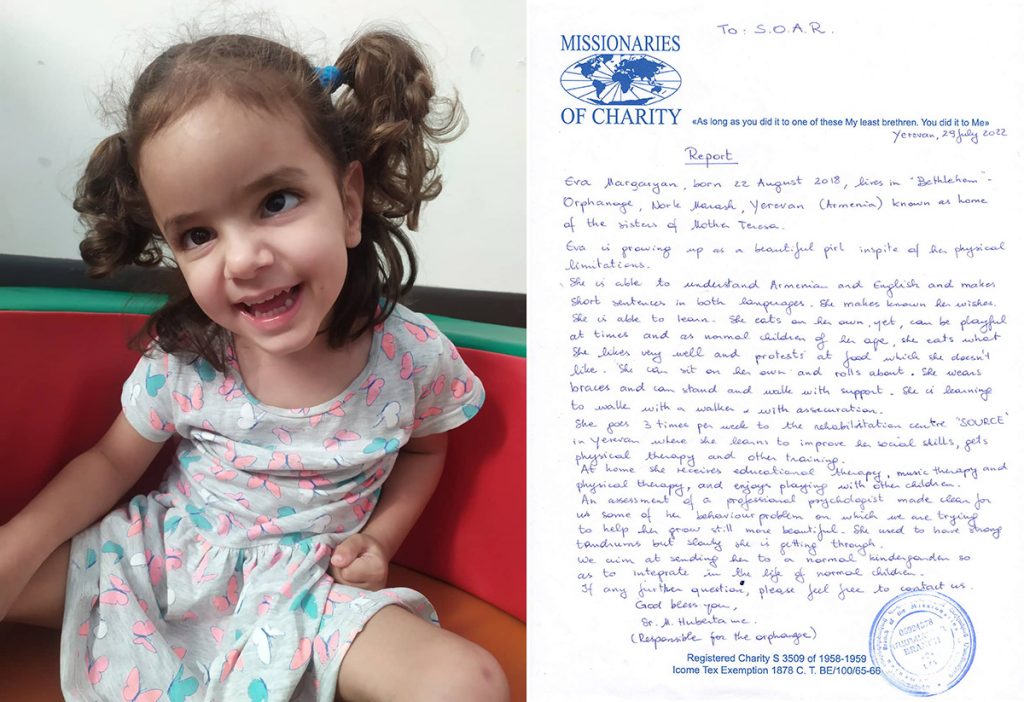 To: S.O.A.R.
MISSIONARIES
OF CHARITY
«As long as you did it to one of these My least brethren. You did it to Me»
Yerevan, 29 July 2022
Report
Eva Margaryan, born 22 August 2018, lives in "Bethlehem"-
Orphanage, Nork Marash, Yerevan (Armenia) known as home
of the sisters of Mother Teresa.
Eva is growing up as a beautiful girl inspite of her physical
limitations.
She is able to understand Armenian and English and makes
short sentences in both languages. She makes known her wishes.
She is able to learn. She eats on her own, yet, can be playful
at times and as normal children of her age, she eats what
She likes very well and protests at food which she doesn't
like. She can sit on her own and rolls about. She wears
braces and can stand and walk with support. She is learning
to walk with a walker with assecuration.
She goes 3 times per week to the rehabilitation centre "SOURCE"
in Yerevan where she learns to improve her social skills, gets
physical therapy and other training.
At home she receives educational therapy, music therapy and
physical therapy, and enjoys playing with other children.
An assessment of a professional psychologist made clear for
us some of her behaviour problem on which we are trying
to help her grow still more beautiful. She used to have strong
tandrums but slowly she is getting through.
We aim at sending her to a normal kindergarden so
as to integrate in the life of normal children.
If any further question, please feel free to contact us.
God bless you,
Sr. M. Huberta mc.
(Responsible for the orphanage)
Registered Charity S 3509 of 1958-1959
Icome Tex Exemption 1878 C. T. BE/100/65-66